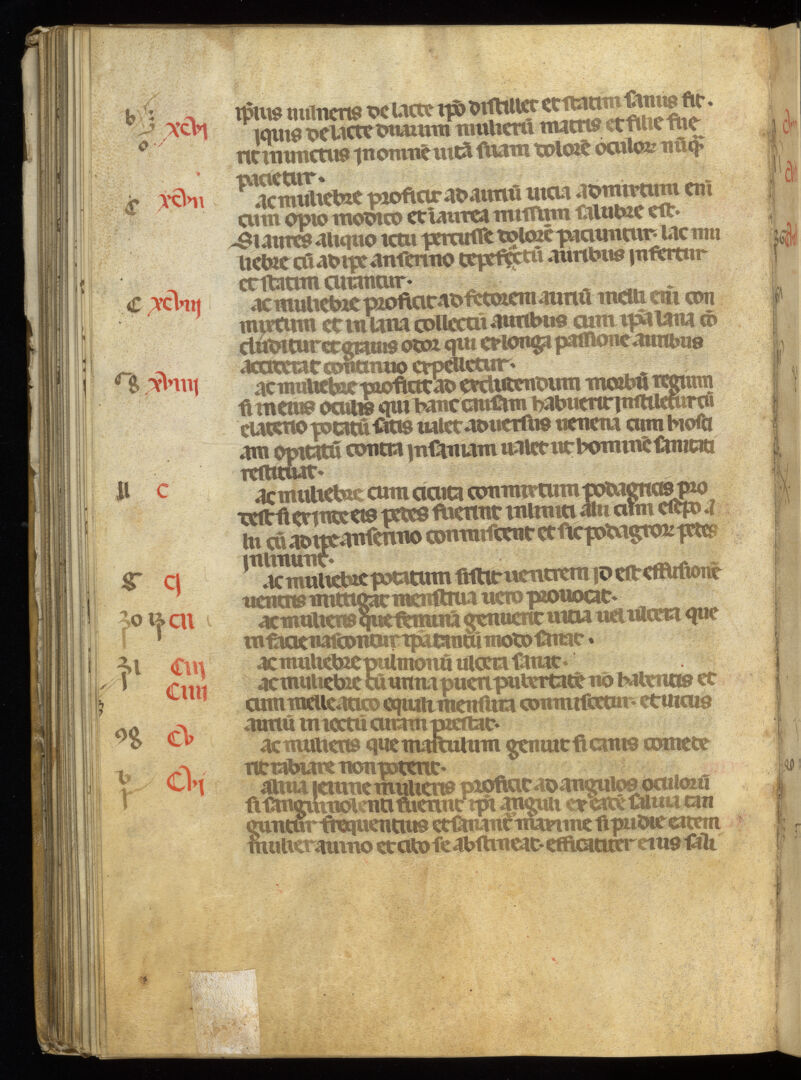 ip̄ius uulneris de lacte ip̄o distillet et statim sanus fit.
xcvi iquis de lacte duarum mulierū matris et filie fue
rit inunctus in omnē uitā suam dolorē oculoꝝ nūq̄
pacietur.
c xcvii ac muliebre proficit ad auriū uicia admixtum eni̅
cum opio modico et iaurea missum salubre est.
Si aures aliquo ictu percusse dolorē paciuntur. lac mu
liebre cū adipe anserino tepefectū auribus infertur
et statim curantur.
c xcviii ac muliebre proficit ad fetorem auriū melli eni̅ con
mixtum et in lana collectū auribus cum ip̄a lana cō
cluditur et grauis odor qui ex longa passione auribus
acciderat continuo expelletur.
98 xcviiii ac muliebre proficit ad excludendum morbū regium
si in eius oculis qui hanc causam habuerit instiletur cū
elaterio potatū satis ualet aduersus uenena cum biosti
am opitatū contra insaniam ualet ut hominē sanitati
restituat.
c ac muliebre cum cicuta conmixtum podagricis pro
dest si ex inde eis pedes fuerint inliniti alii cum esepo a
lii cū adipe anserino conmiscent et sic podagroꝝ pedes
inlinunt.
ci ac muliebre potatum sistit uentrem id est effusionē
uentris mittigat menstrua uero prouocat.
cii ac mulieris que feminā genuerit uitia uel ulcera que
in facie nascontur ip̄a tantū modo sanat.
31 ciii ac muliebre pulmonū ulcera sanat.
ciiii ac muliebre cū urina pueri pubertatē nō habentis et
cum melle atico equali mensura conmiscetur. et uicus
auriū in iectū curam prestat.
98 cv ac mulieris que masculum genuit si canis comede
rit rabiare non poterit.
b cvi aliua ieiune mulieris proficit ad angulos oculorū
si sanguinolenti fuerint ip̄i anguli ex eadē saliua tan
guntur frequentius et sanant̄ maxime si pridie eadem
mulier a uino et cibo se abstineat. efficaciter eius sali